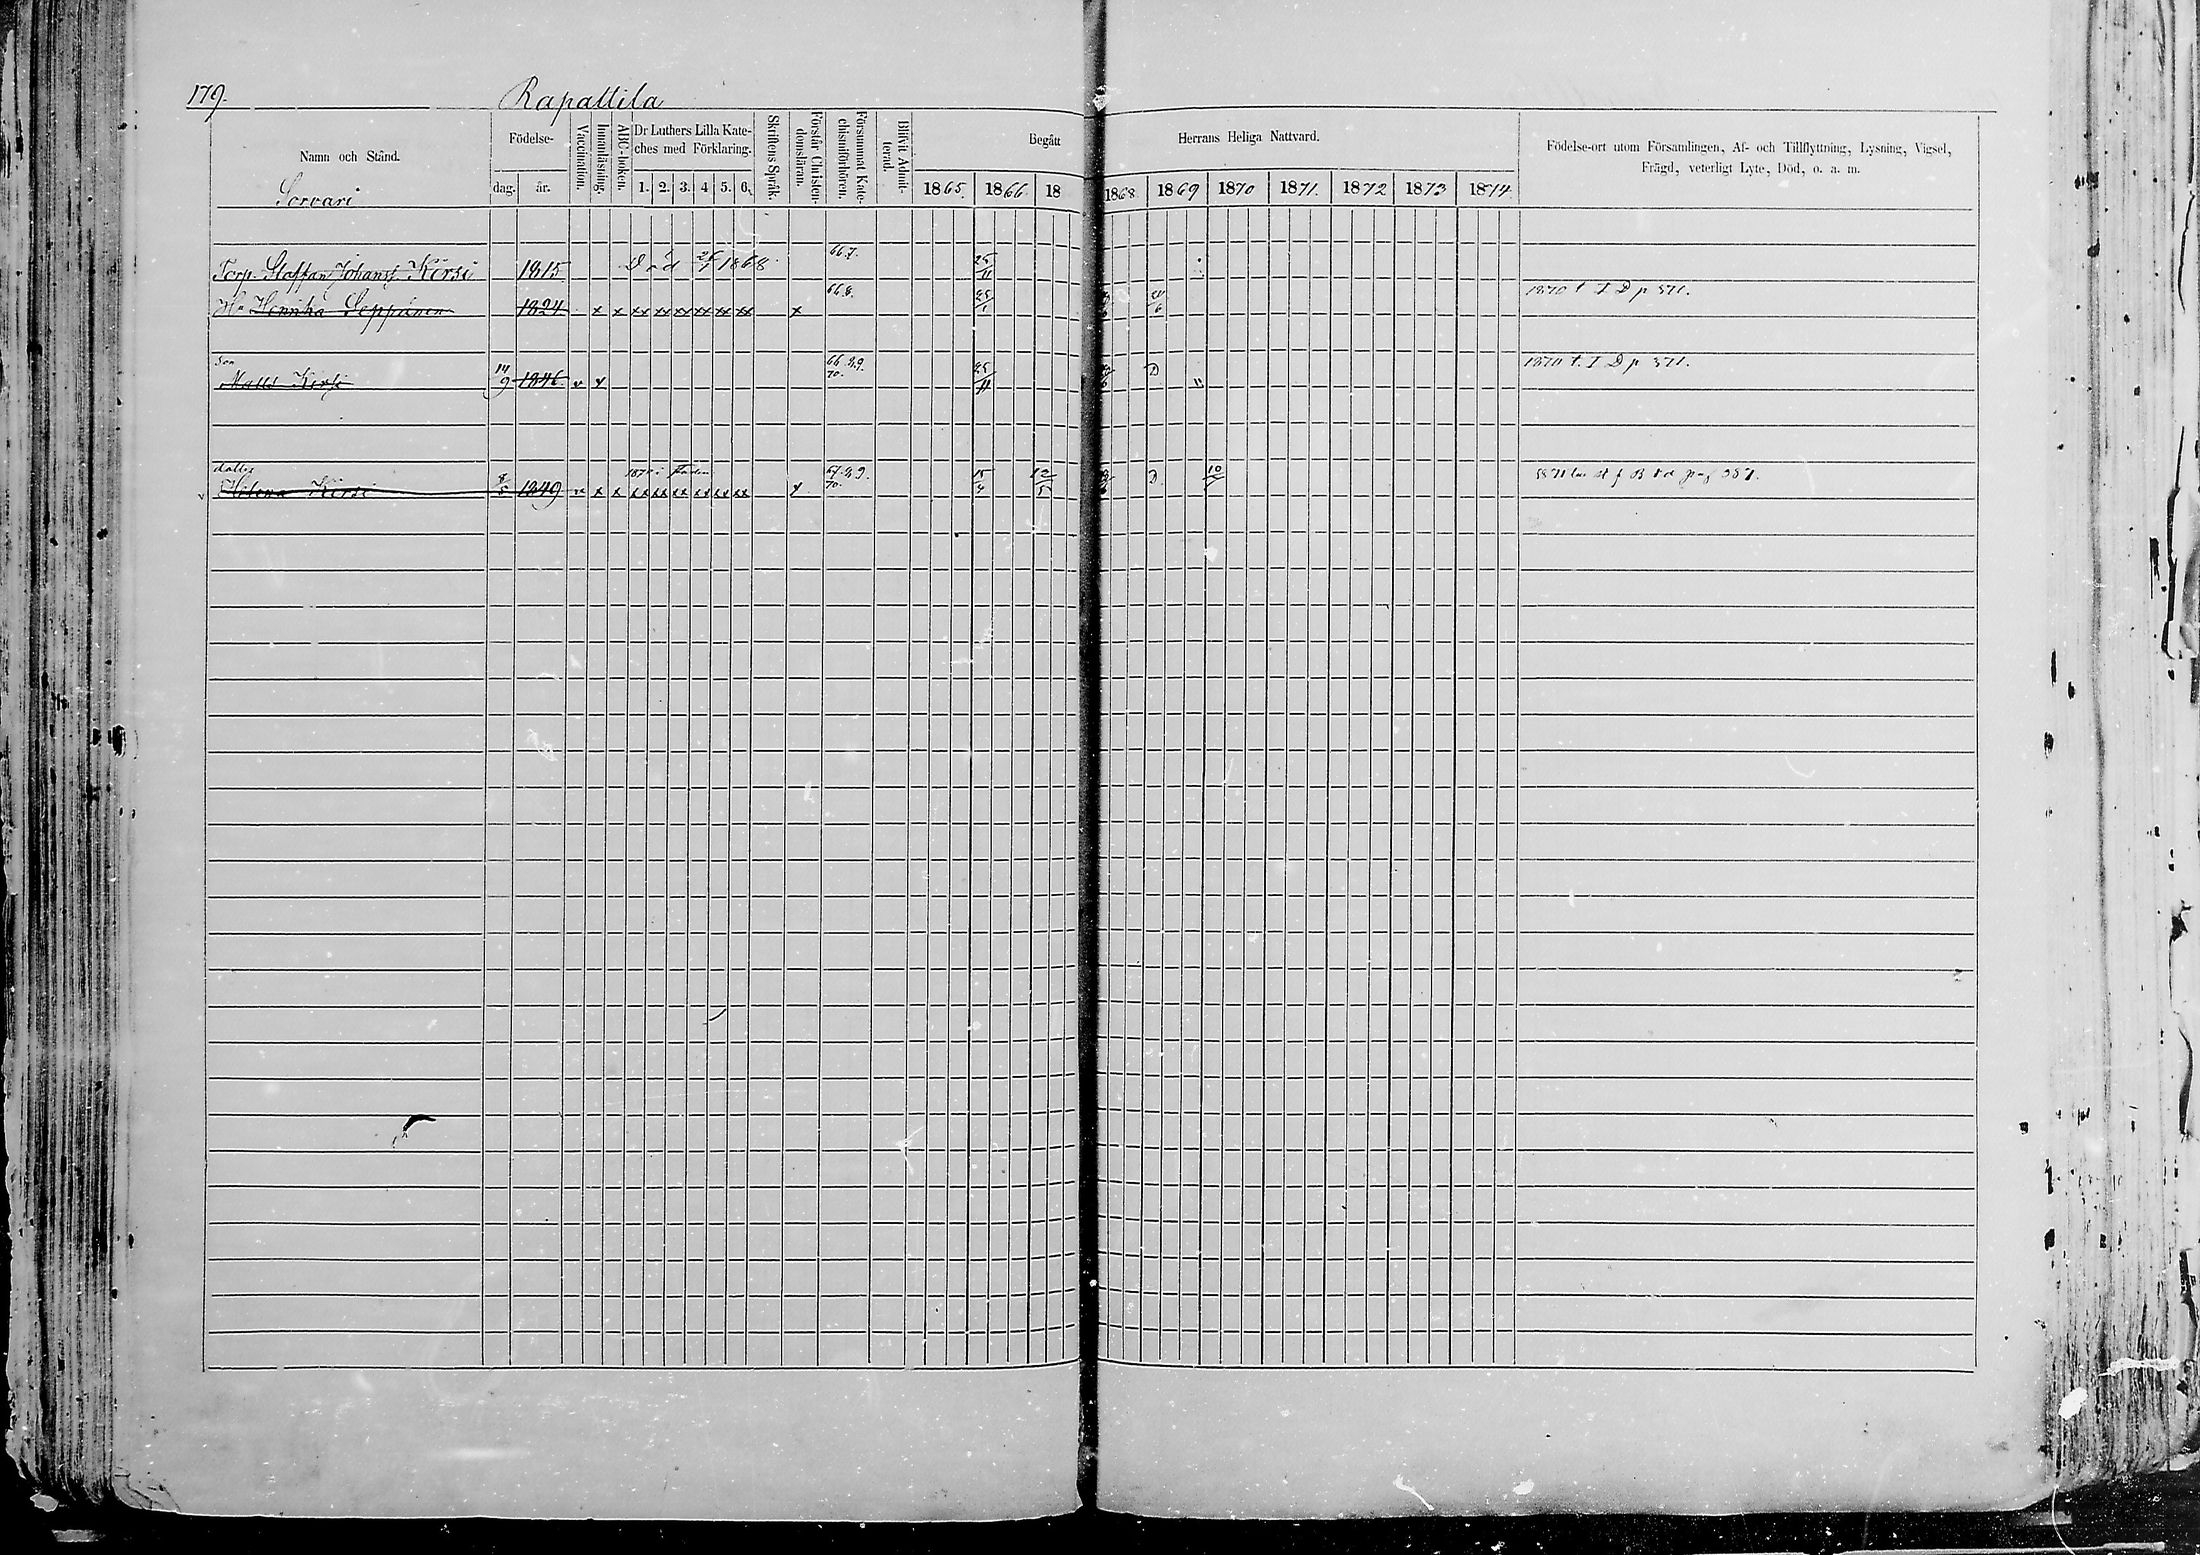 179. Rapattila
Namn och Stånd.
Sorvari
Födelse-
dag. år.
Vaccination.
Innanläsning.
ABC-boken.
Dr Luthers Lilla Kate-
ches med Förklaring.
1. 2. 3. 4 5. 6.
Skriftens Språk.
Förstår Christen-
domsläran.
Försummat Kate-
chismiförhören.
Blifvit Admit-
terad.
Begått Herrans Heliga Nattvard.
1865. 1866. 18 1868. 1869 1870 1871. 1872 1873 1874.
Födelse-ort utom Församlingen, Af- och Tillflyttning, Lysning, Vigsel,
Frägd, veterligt Lyte, Död, o. a. m.
Torp. Staffan Johansf Kirsi 1815 Död 1868. 66.7. 25/11
Hu Henrika Seppänen 1824 x x xx xx xx xx xx xx x 66.8. 1870 t. I D p 371.
Son
Matts Kirsi 14/9 1846. 66.8.9. 70. 25/11 D 1870 t. I D p 371.
dotter
Helena Kirsi 1849 x x x xx xx xx xx xx xx 67.8.9. 70. D